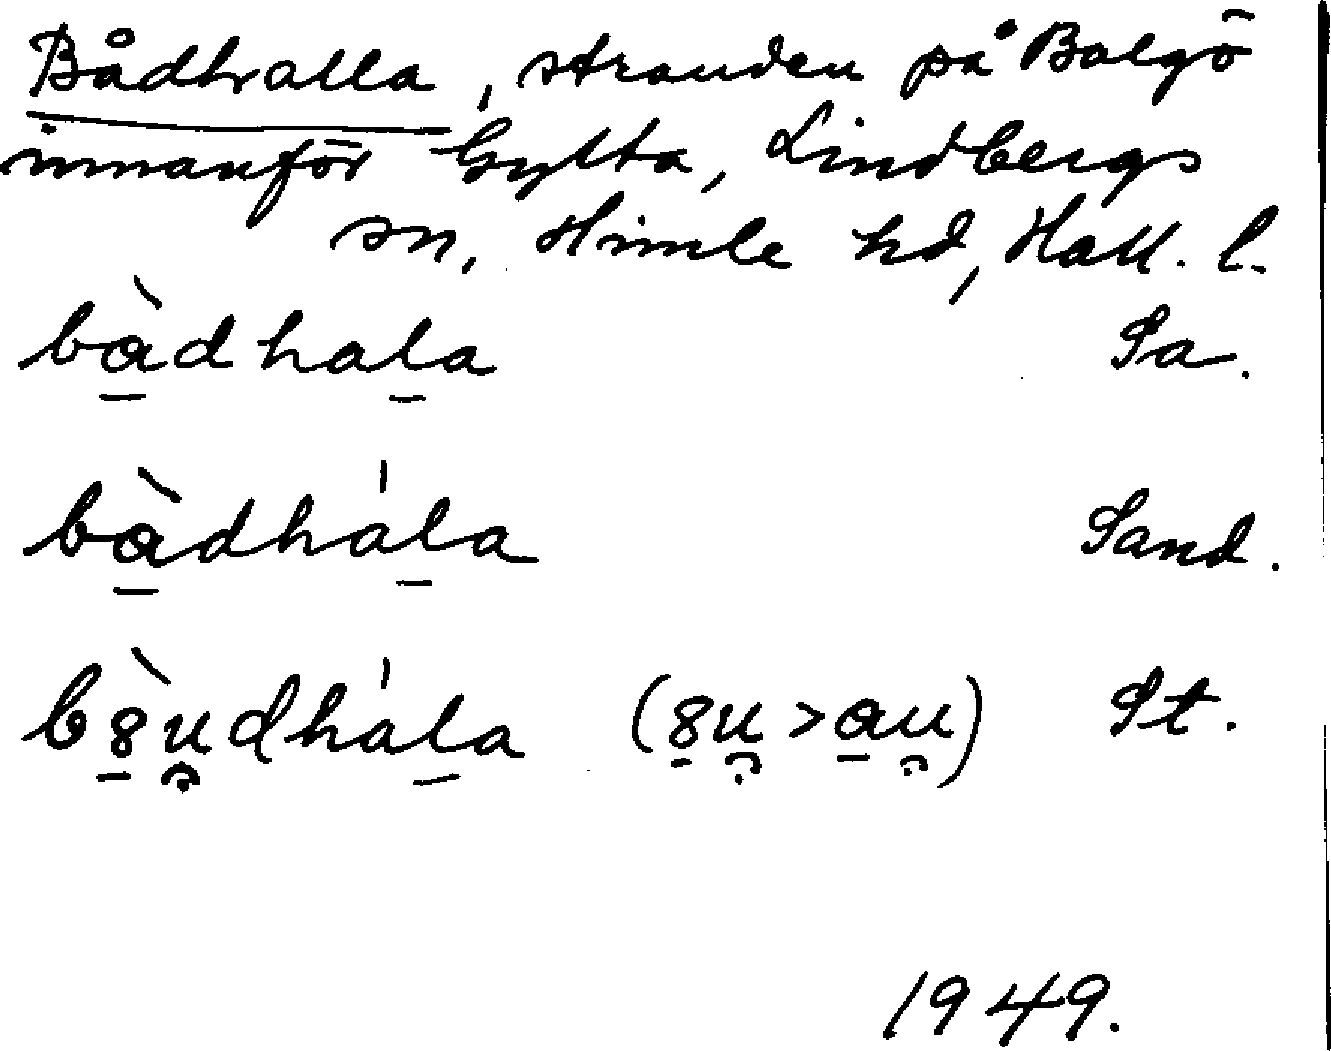 Bådhalla, stranden på Balgö
innanför Gylta, Lindbergs
sn, Himle hd, Hall. l.
bà̱dhaḻa Sa.
bà̱dháḻa Sand.
b8̱̀u̯dháḻa (8̱u̯ > a̱u̯) St.
1949.